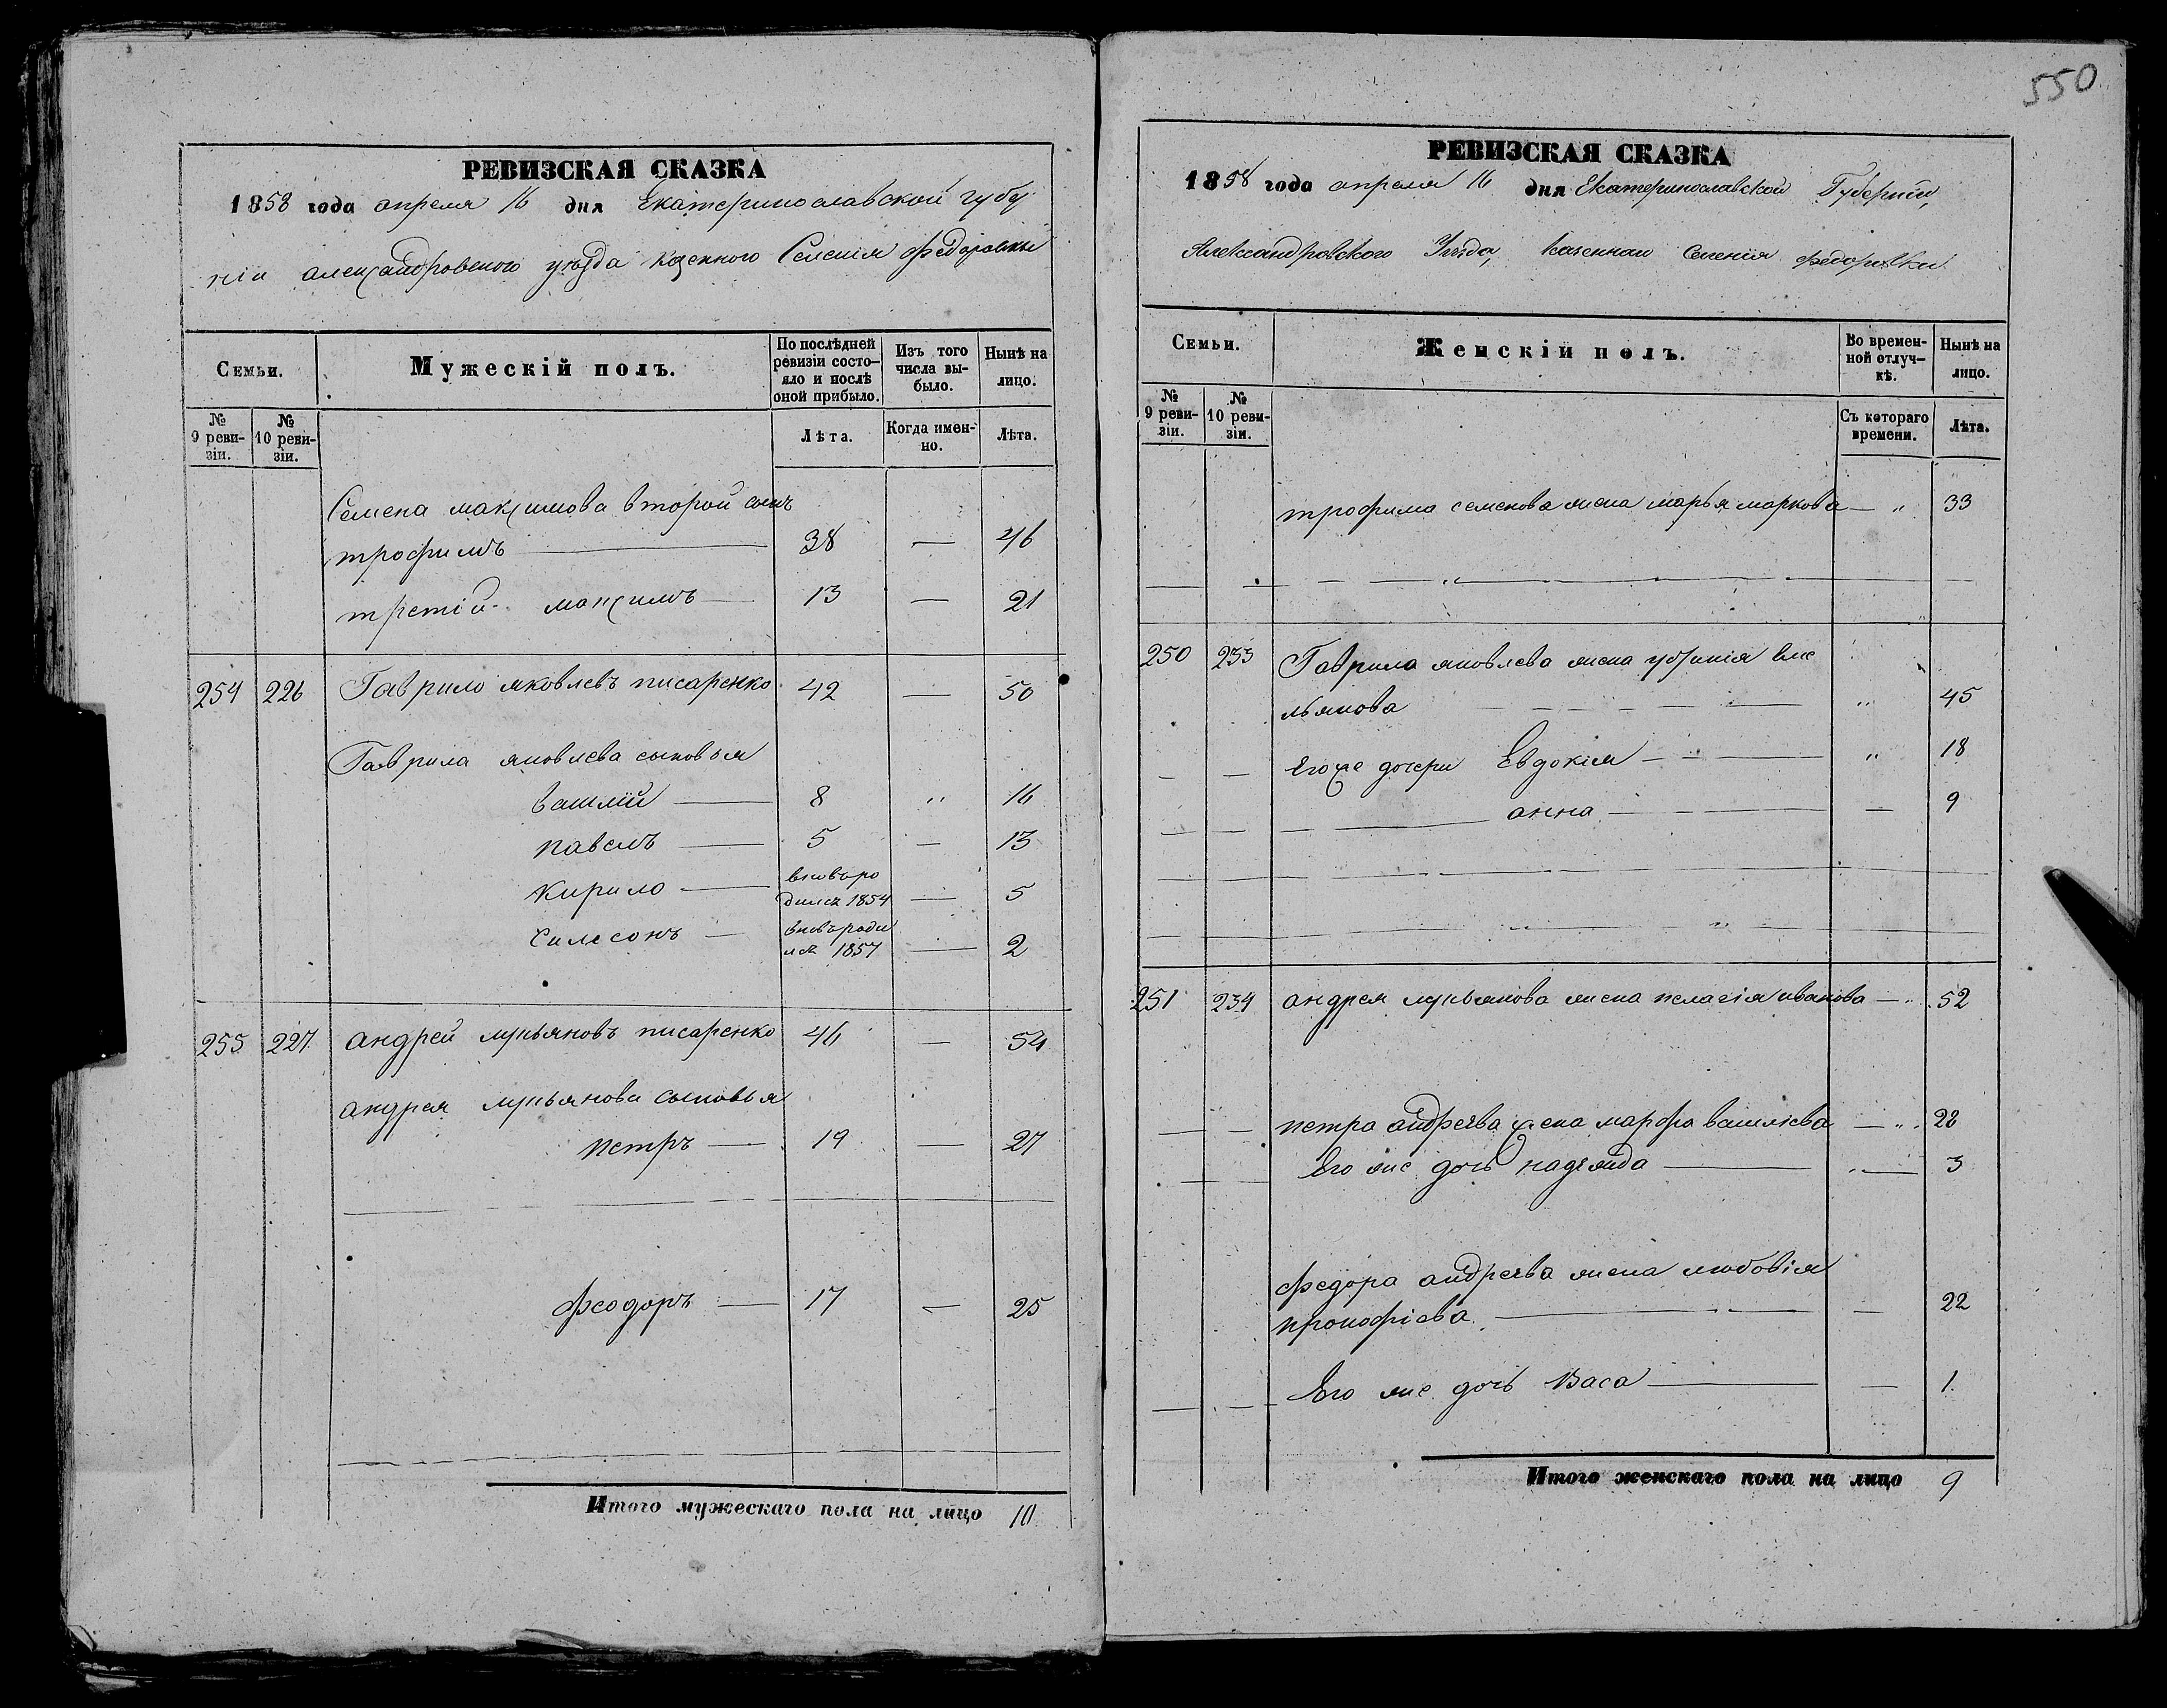 550
РЕВИЗСКАЯ СКАЗКА
1858 года апреля 16 дня Екатеринославской губер
ніи александровского уезда казенного Селенія Федоровки
Семьи.
Мужескій полъ.
По послѣдней ревизіи состо-
яло и послѣ оной прибыло.
Изъ того числа вы-
было.
Нынѣ на лицо.
№ 9 реви-
зіи.
№ 10 реви-
зіи.
Лѣта.
Когда имен-
но.
Лѣта.
Семена максимова второй сынъ
трофимъ — 38 — 46
третій максимъ — 13 — 21
254 226 Гаврило яковлевъ писаренко 42 — 50
Гаврила яковлева сыновья
василій — 8 " 16
павелъ — 5 — 13
кирило — вновь ро
дился 1854 — 5
— вновь роди
лся 1857 — 2
255 227 андрей лукьяновъ писаренко 46 — 54
андрея лукьянова сыновья
петръ — 19 — 27
феодоръ — 17 — 25
Итого мужескаго пола на лицо 10
РЕВИЗСКАЯ СКАЗКА
1858 года апреля 16 дня Екатеринославской Губерніи,
Александровского Уезда, казеннаи Селенія Федоровки
Семьи.
Женскій полъ.
Во времен-
ной отлуч-
кѣ.
Нынѣ на лицо.
№ 9 реви-
зіи.
№ 10 реви-
зіи.
Съ котораго времени.
Лѣта.
трофима семенова жена марья маркова — " 33
250 233 Гаврила яковлева жена еме
льянова " 45
Егоже дочери Евдокія — " 18
анна — 9
251 234 андрея лукьянова жена пелагія иванова — " 52
петра андреева жена марфа василіева — " 22
Его же дочь надежда — 3
федора андреева жена любовія
прокофіева — 22
Его же дочь Васа — 1
Итого женскаго пола на лицо 9